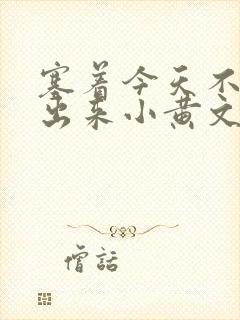 塞着今天不
出来小黄文
僧話